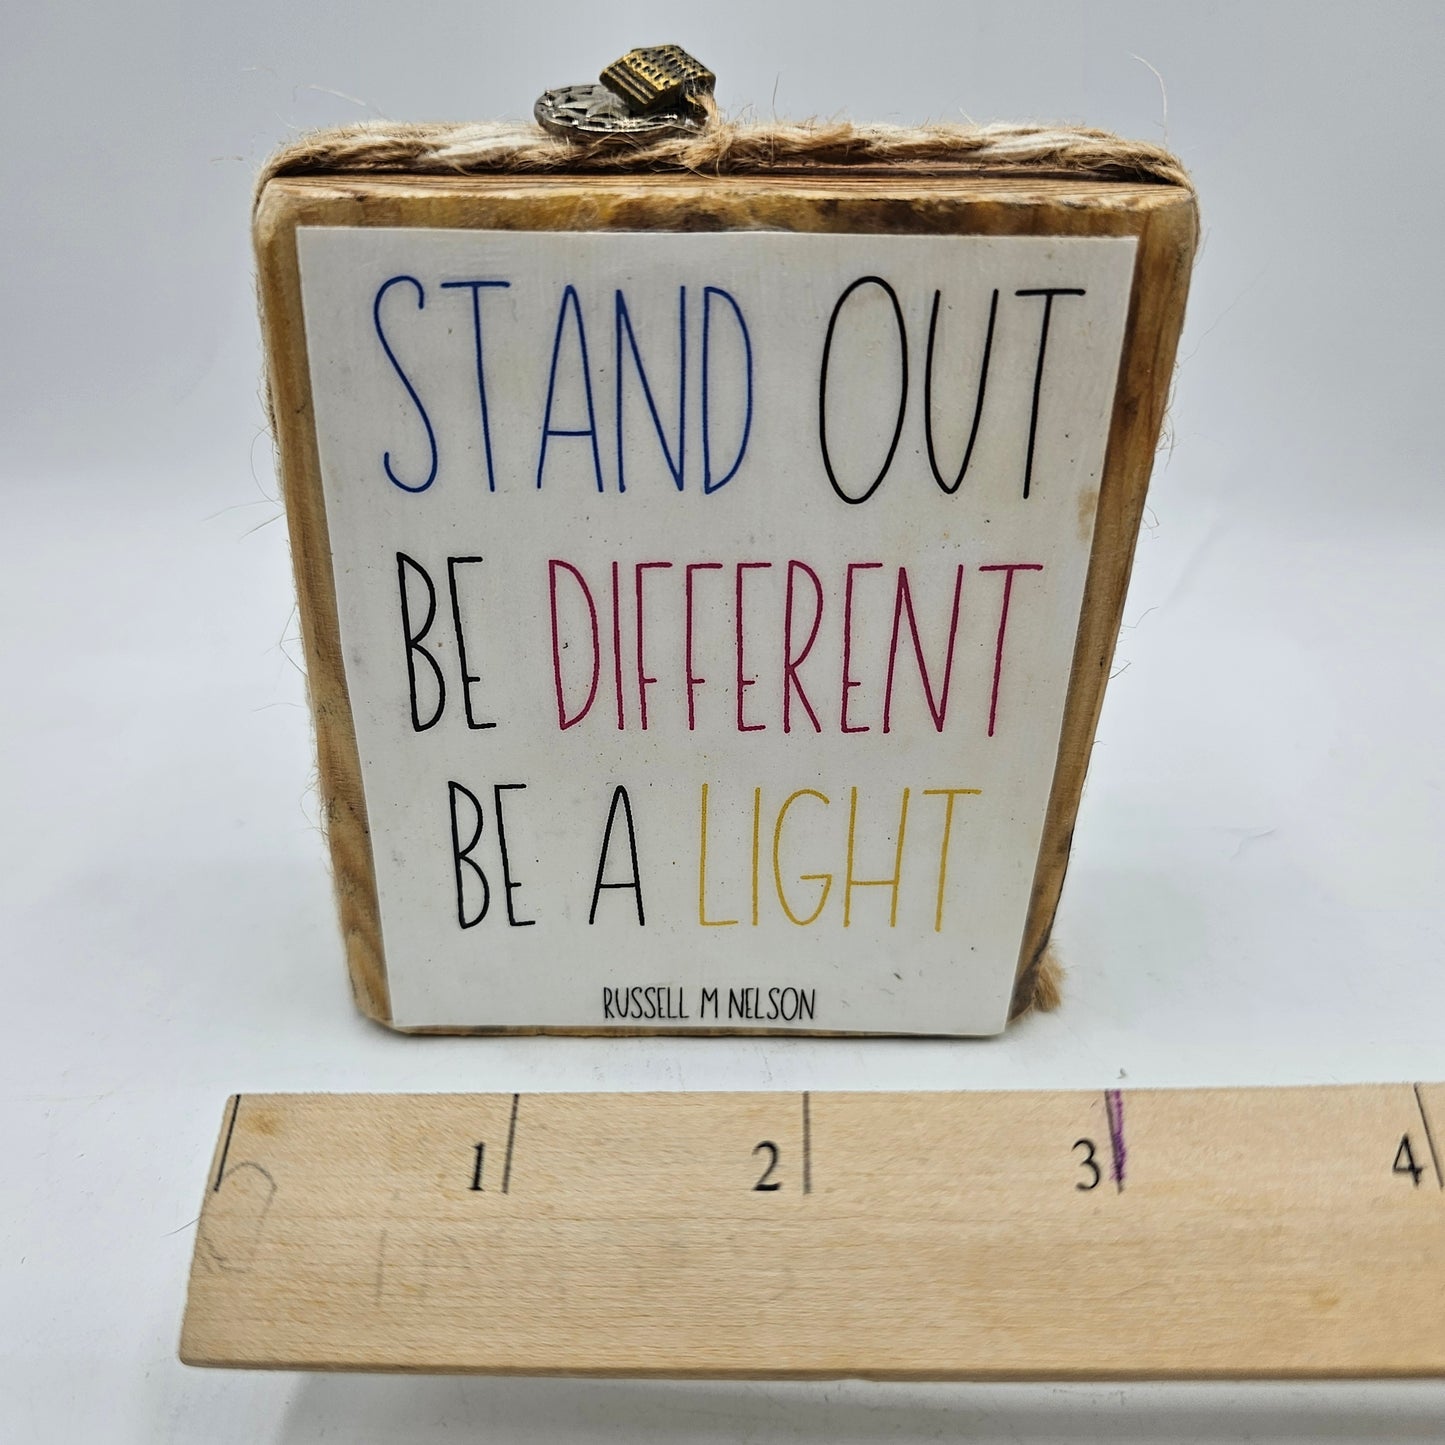 STAND OUT
BE DIFFERENT
BE A LIGHT
RUSSELL M NELSON
1 2 3 4